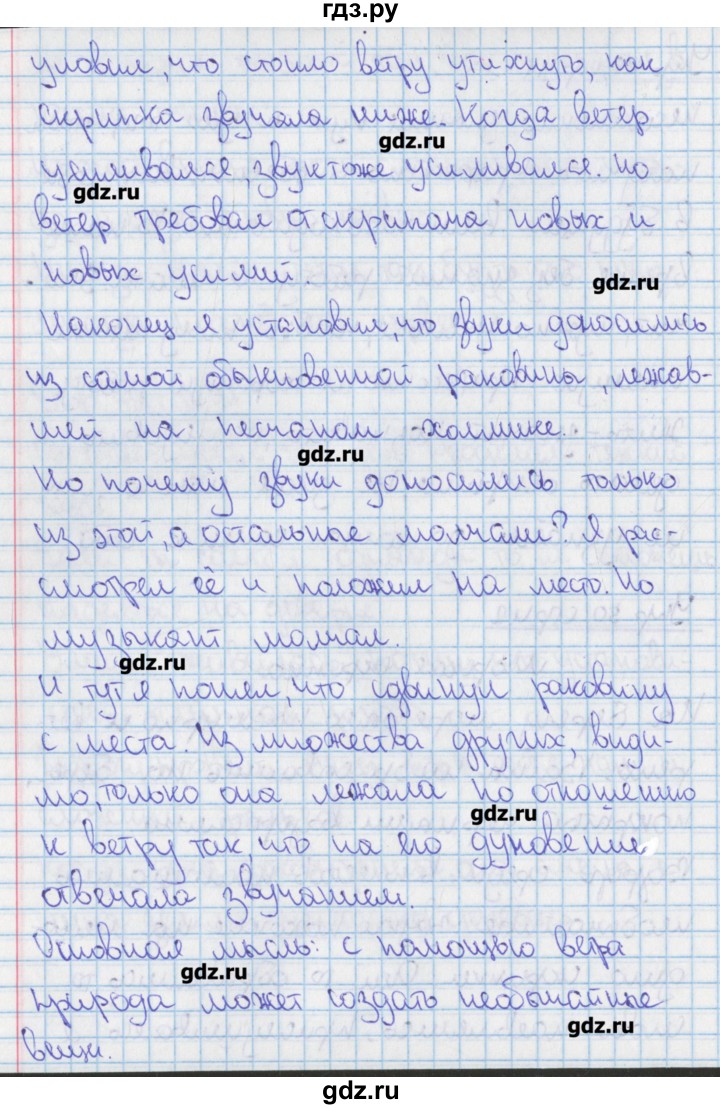 гдз.ру
уловил, что стоило ветру утихнуть, как
скрипка звучала ниже. Когда ветер
gdz.ru
усиливался, звук тоже усиливался. Но
gdz.ru
ветер требовал от скрипача новых и
новых усилий.
gdz.ru
Наконец я установил, что звуки доносились
из самой обыкновенной раковины, лежав-
шей на песчаном холмике.
gdz.ru
Но почему звуки доносились только
из этой, а остальные молчали? Я рас-
смотрел её и положил на место. Но
музыкант молчал.
gdz.ru
И тут я понял, что сдвинул раковину
с места. Из множества других, види-
мо, только она лежала по отношению
gdz.ru
к ветру так, что на его дуновение
отвечала звучанием.
Основная мысль: с помощью ветра
gdz.ru
природа может создать необычайные
gdz.ru
вещи.
gdz.ru